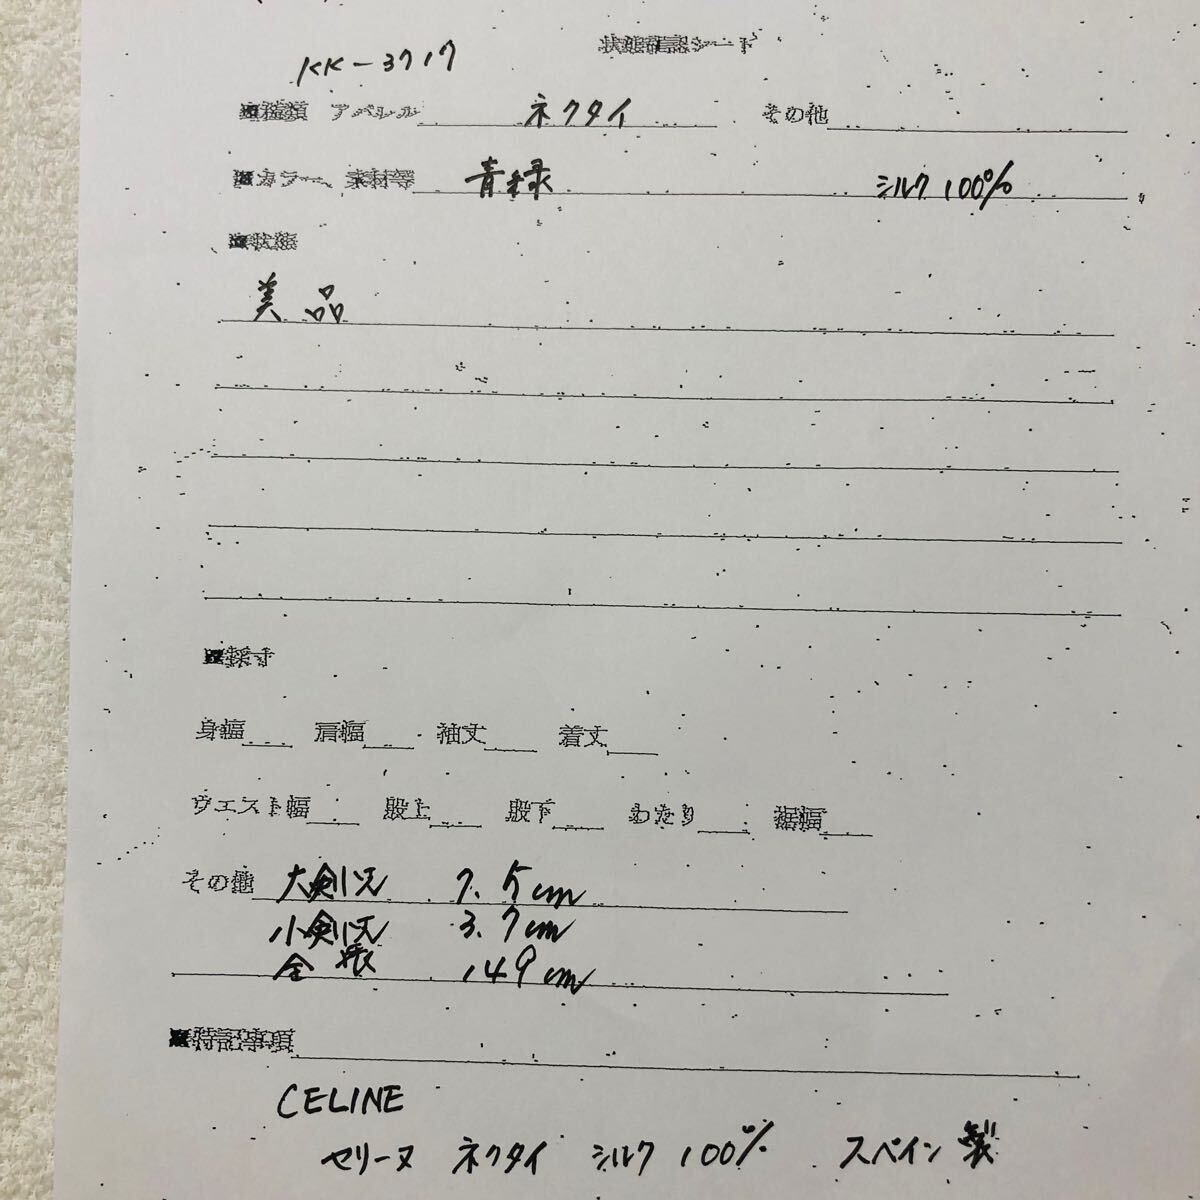 状態確認シート
KK-3717
■種類 アパレル ネクタイ その他
■カラー、素材等 青緑 シルク100%
■状態
美品
■採寸
身幅 肩幅 袖丈 着丈
ウエスト幅 股上 股下 わたり 裾幅
その他 大剣 7.5cm
小剣 3.7cm
全長 149cm
■特記事項
CELINE
セリーヌ ネクタイ シルク100% スペイン製